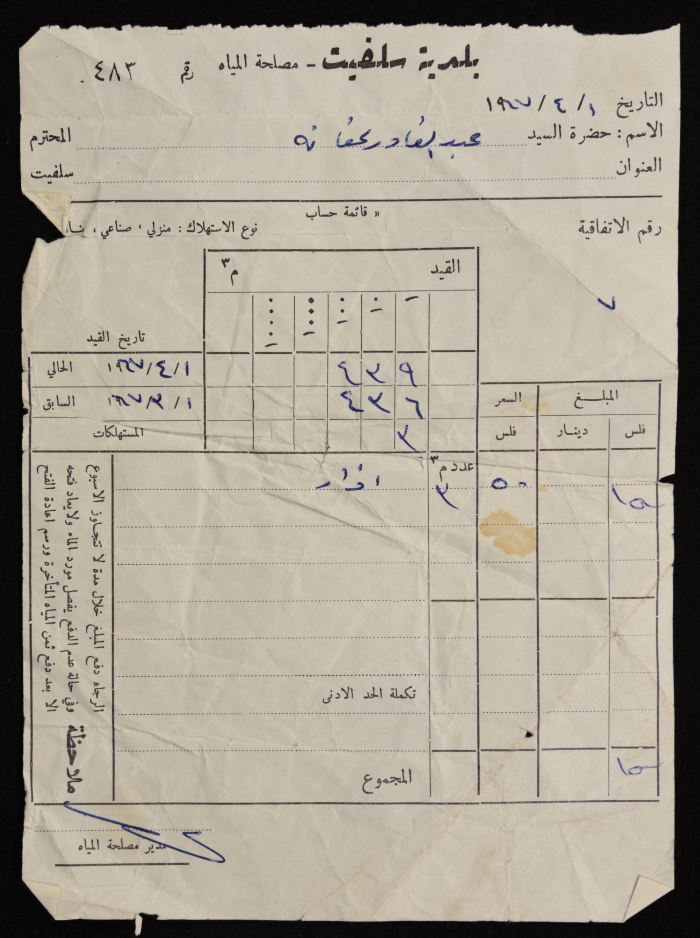 بلدية سلفيت - مصلحة المياه رقم ٤٨٣
التاريخ ١ / ٤ / ١٩٦٧
الاسم : حضرة السيد عبد القادر عفانه المحترم
العنوان سلفيت
« قائمة حساب
رقم الاتفاقية نوع الاستهلاك : منزلي ، صناعي ، بناء
٧
القيد م٣
١ ١٠ ١٠٠ ١٠٠٠ ١٠٠٠٠
تاريخ القيد
٤٣٩ ١ / ٤ / ١٩٦٧ الحالي
٤٣٦ ١ / ٣ / ١٩٦٧ السابق
٣ المستهلكات
المبلغ السعر
فلس دينار فلس
عدد م٣
١٥٠ ٥٠ ٣
تكملة الحد الادنى
١٥٠ المجموع
ملاحظة
الرجاء دفع المبلغ خلال مدة لا تتجاوز الاسبوع
وفي حالة عدم الدفع يفصل مورد الماء ولا يعاد فتحه
الا بعد دفع ثمن المياه المتأخرة ورسم اعادة الفتح
مدير مصلحة المياه